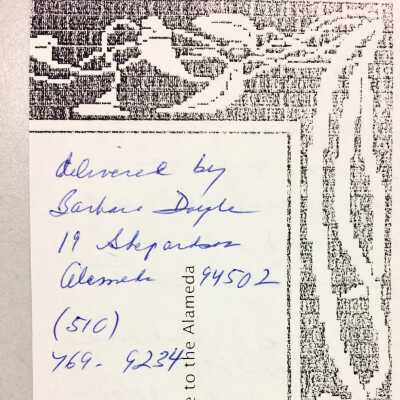 delivered by
Barbara Doyle
19 Shepardson
Alameda 94502
(510)
769-9234
e to the Alameda